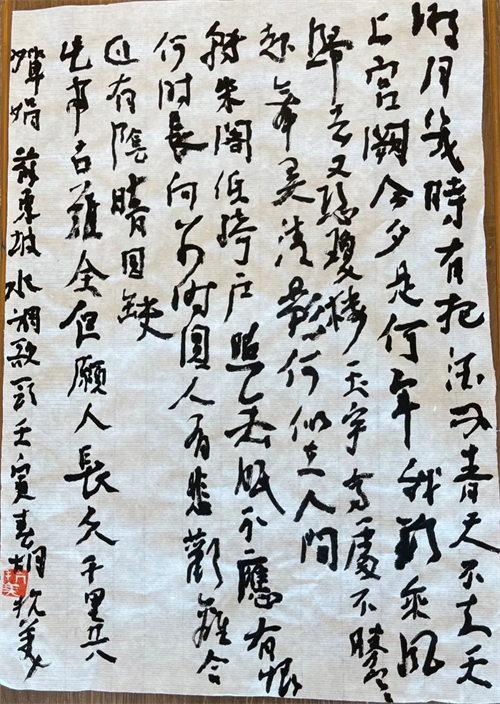 明月幾時有把酒问青天不知天
上宮闕今夕是何年我欲乘風
歸去又恐瓊樓玉宇高處不勝寒
起舞弄清影何似在人间
轉朱閣低绮户照無眠不應有恨
何时長向别时圆人有悲歡離合
月有陰晴圆缺
此事古難全但願人長久千里共
嬋娟 蘇東坡水调歌頭壬寅春胡抗美